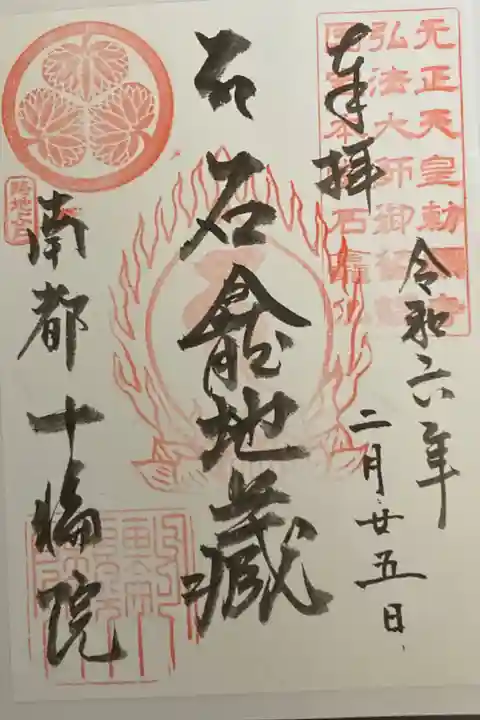 元正天皇勅願寺
弘法大師御
本
石龕仏
奉拝
令和六年
二月廿五日
石龕地蔵
南都十輪院